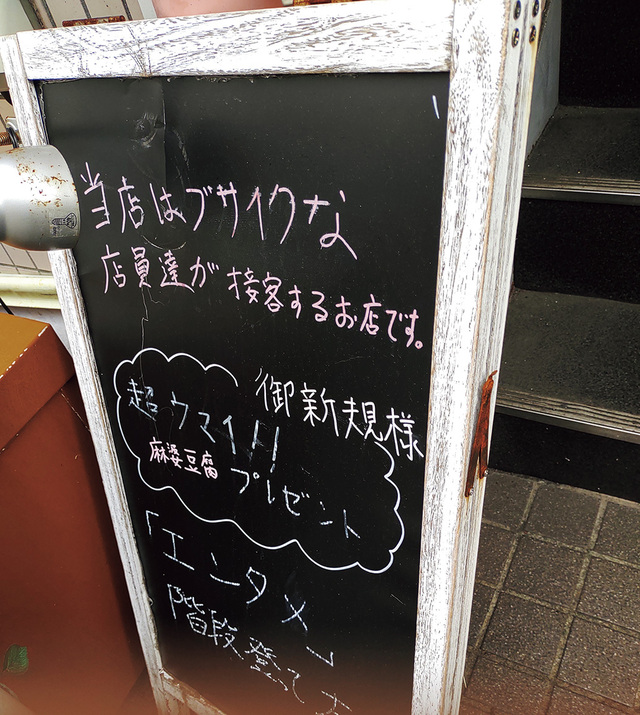 当店はブサイクな
店員達が接客するお店です。
御新規様
超ウマイ!!
麻婆豆腐
プレゼント
「エンタメ」
階段登って